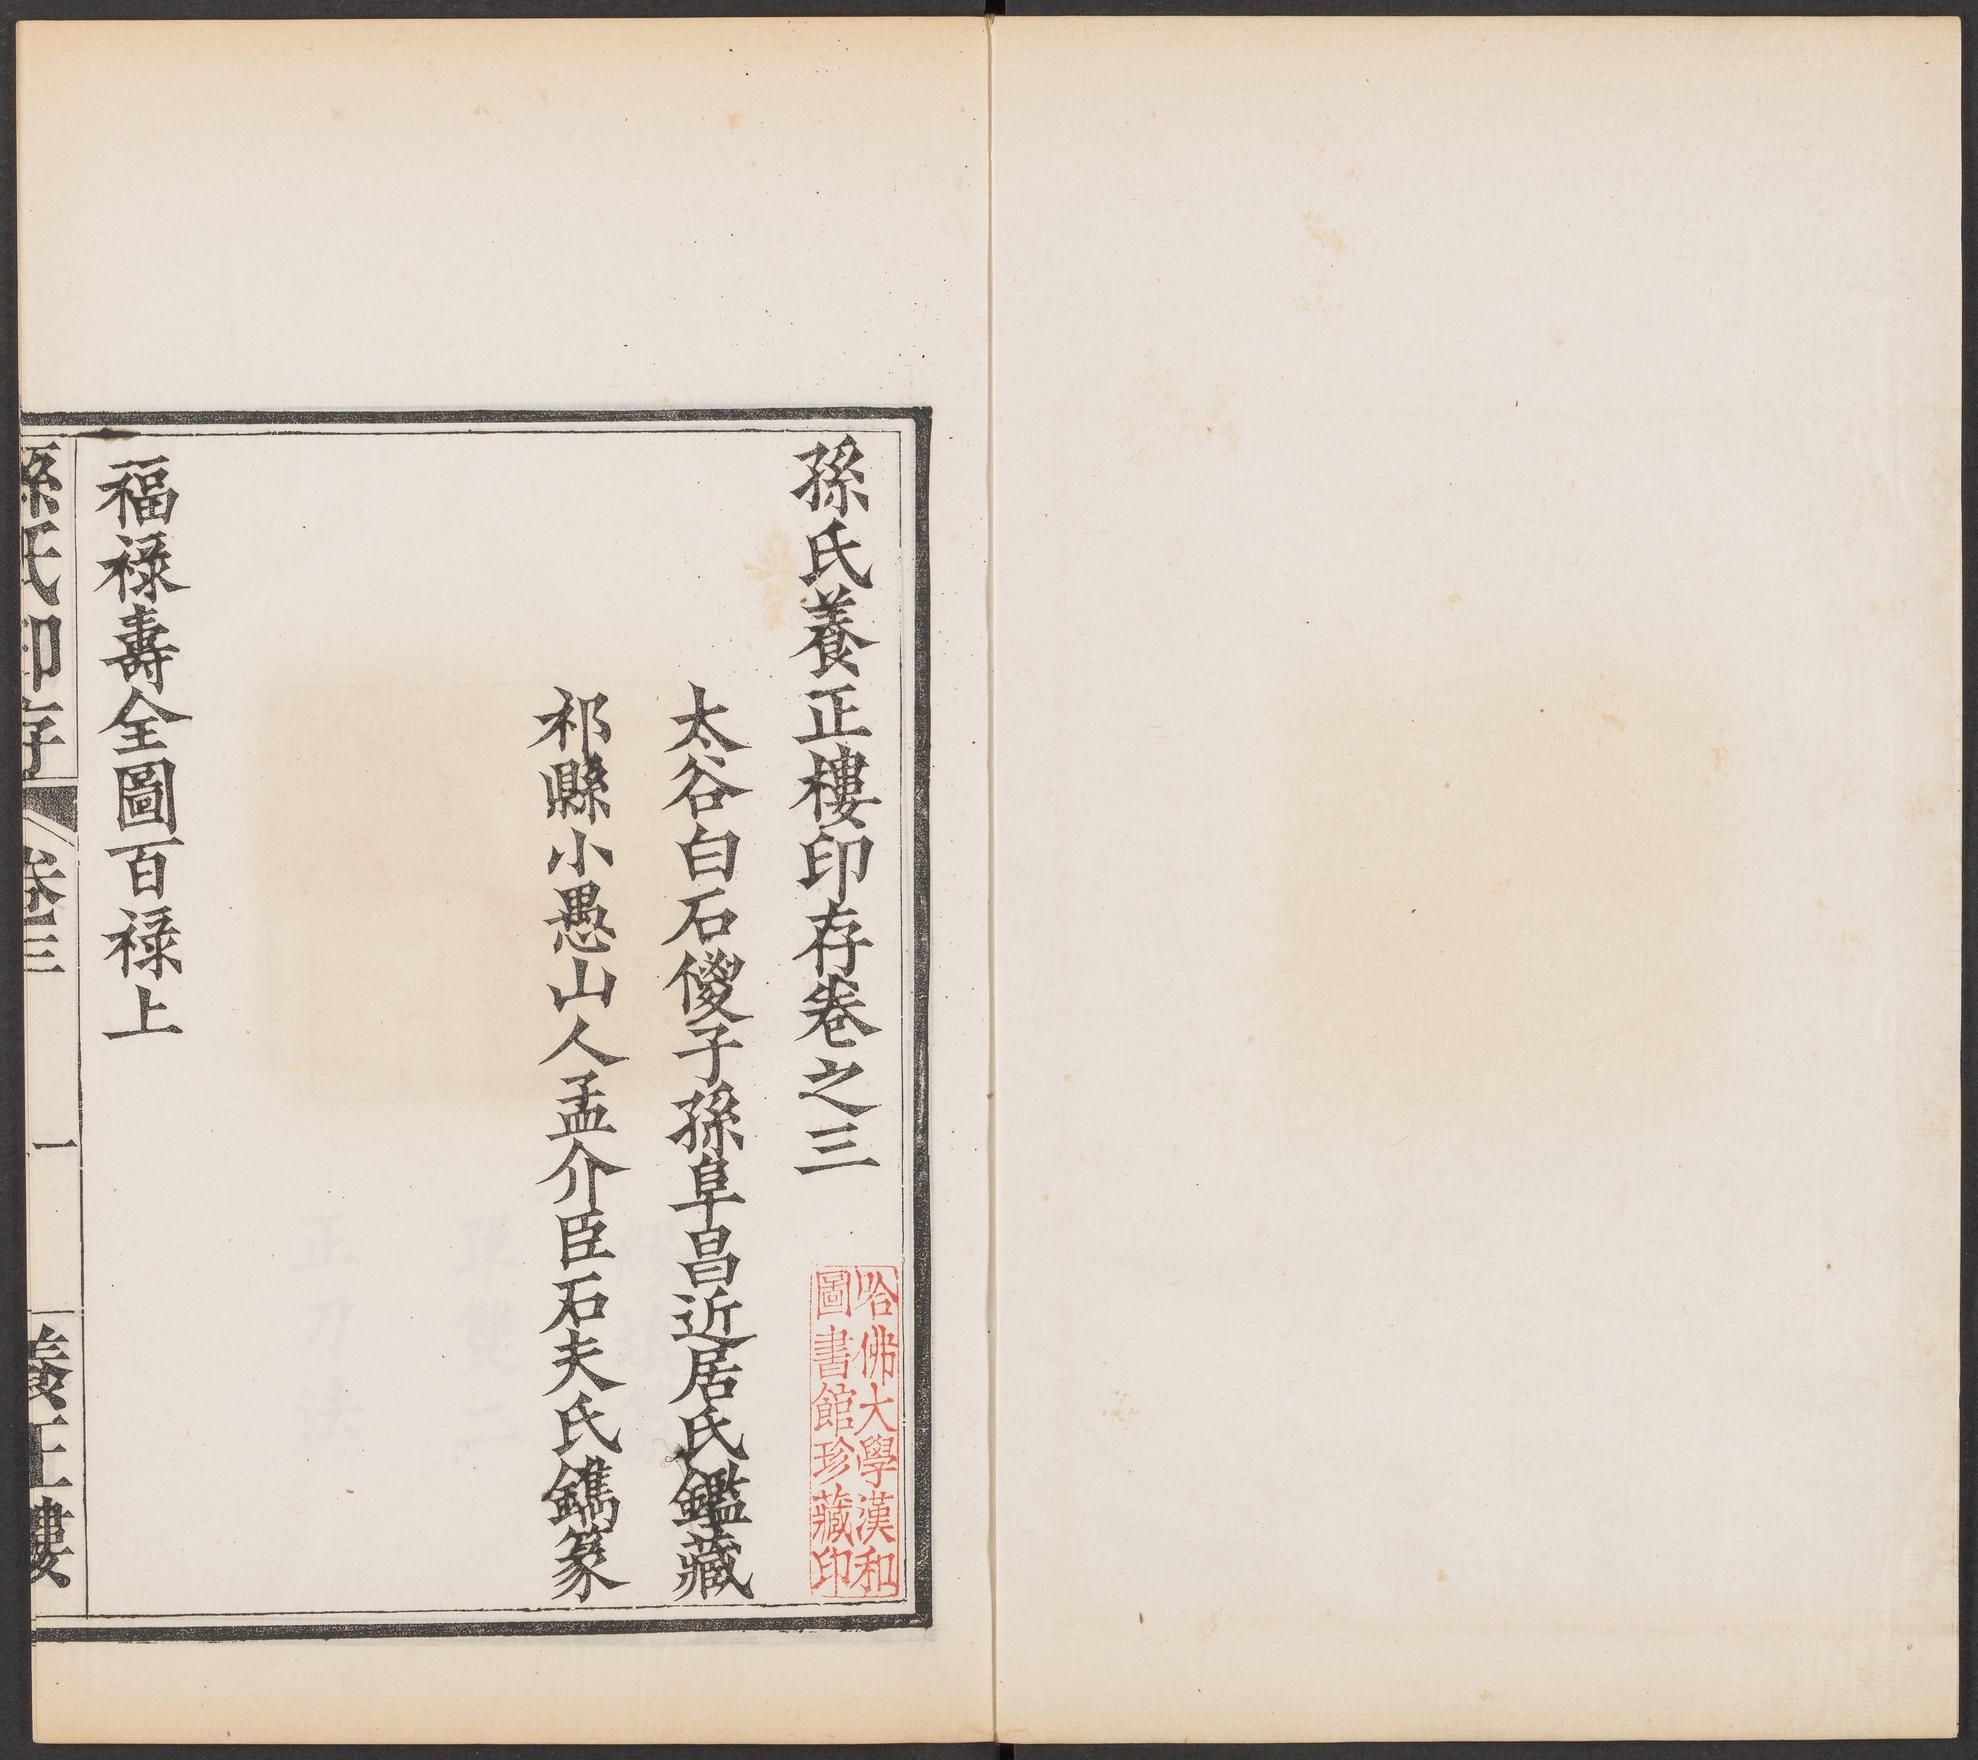 孫氏養正樓印存卷之三
哈佛大學漢和
圖書館珍藏印
太谷白石傻子孫阜昌近居氏鑑藏
祁縣小愚山人孟介臣石夫氏鐫篆
福祿壽全圖百祿上
孫氏印存 卷三 一 養正樓